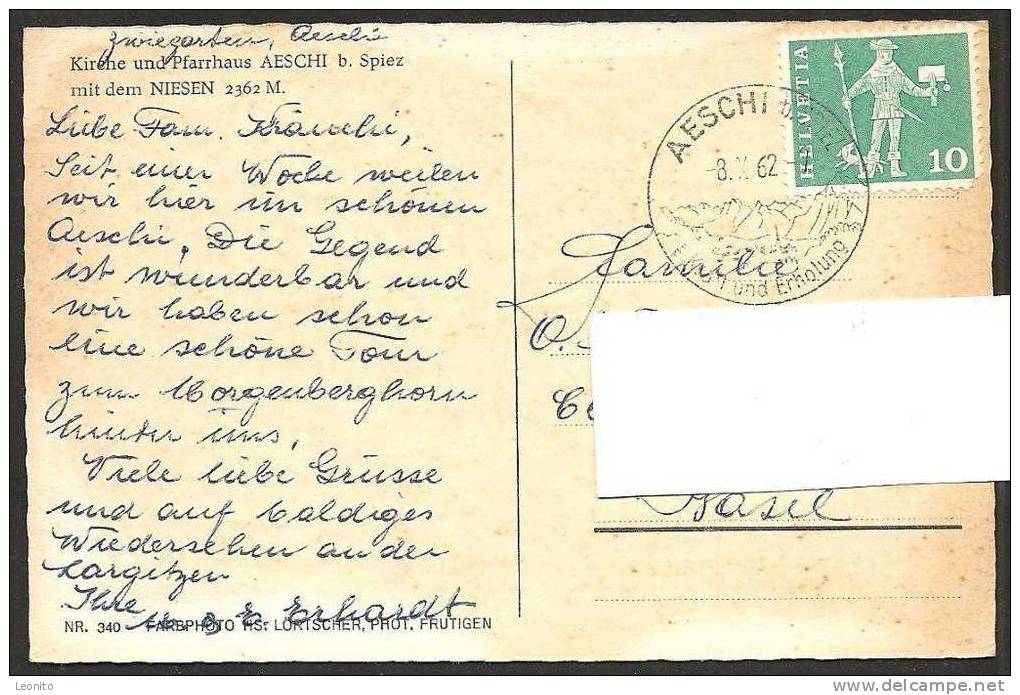 Zwiegarten, Aeschi
Kirche und Pfarrhaus AESCHI b. Spiez
mit dem NIESEN 2362 M.
Liebe Fam.
Seit einer Woche weilen
wir hier im schönen
Aeschi. Die Gegend
ist wunderbar und
wir haben schon
eine schöne Tour
zum Morgenberghorn
hinter uns.
Viele liebe Grüsse
und auf baldiges
Wiedersehen an der
Ihre
Erhardt
NR. 340 FARBPHOTO HS. LÖRTSCHER, PROT. FRUTIGEN
HELVETIA
10
AESCHI b.
-8. X. 62
und Erholung
Familie
O.
Basel
© Leonito
delcampe.net